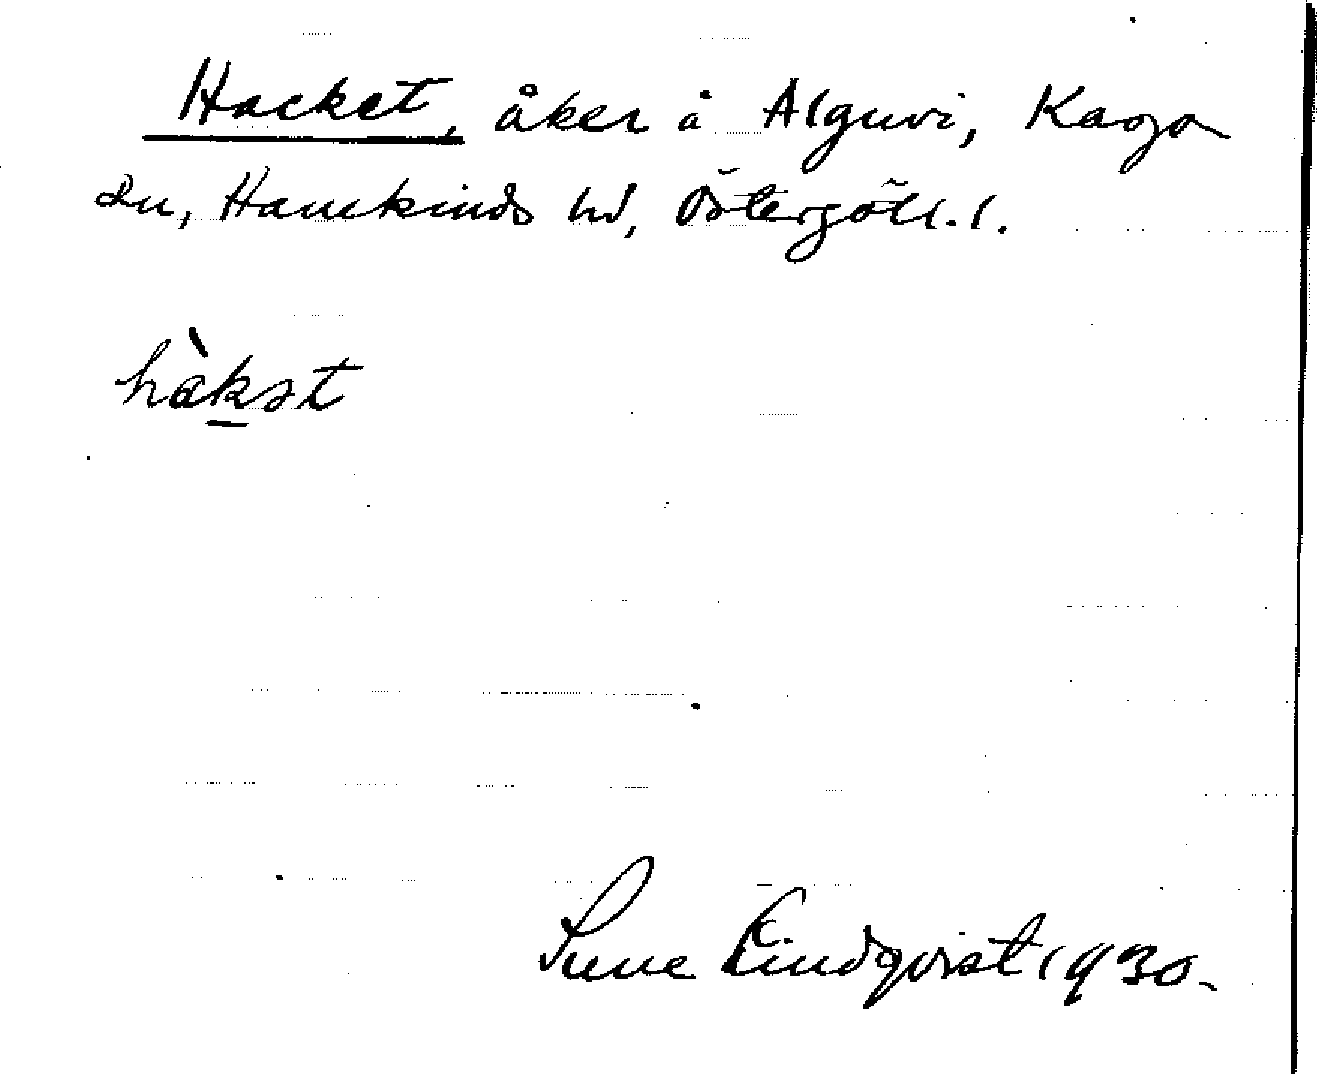 Hacket, åker å Alguvi, Kaga
sn, Hanekinds hd, Östergötl. l.
hàkst
Sune Lindqvist 1930.